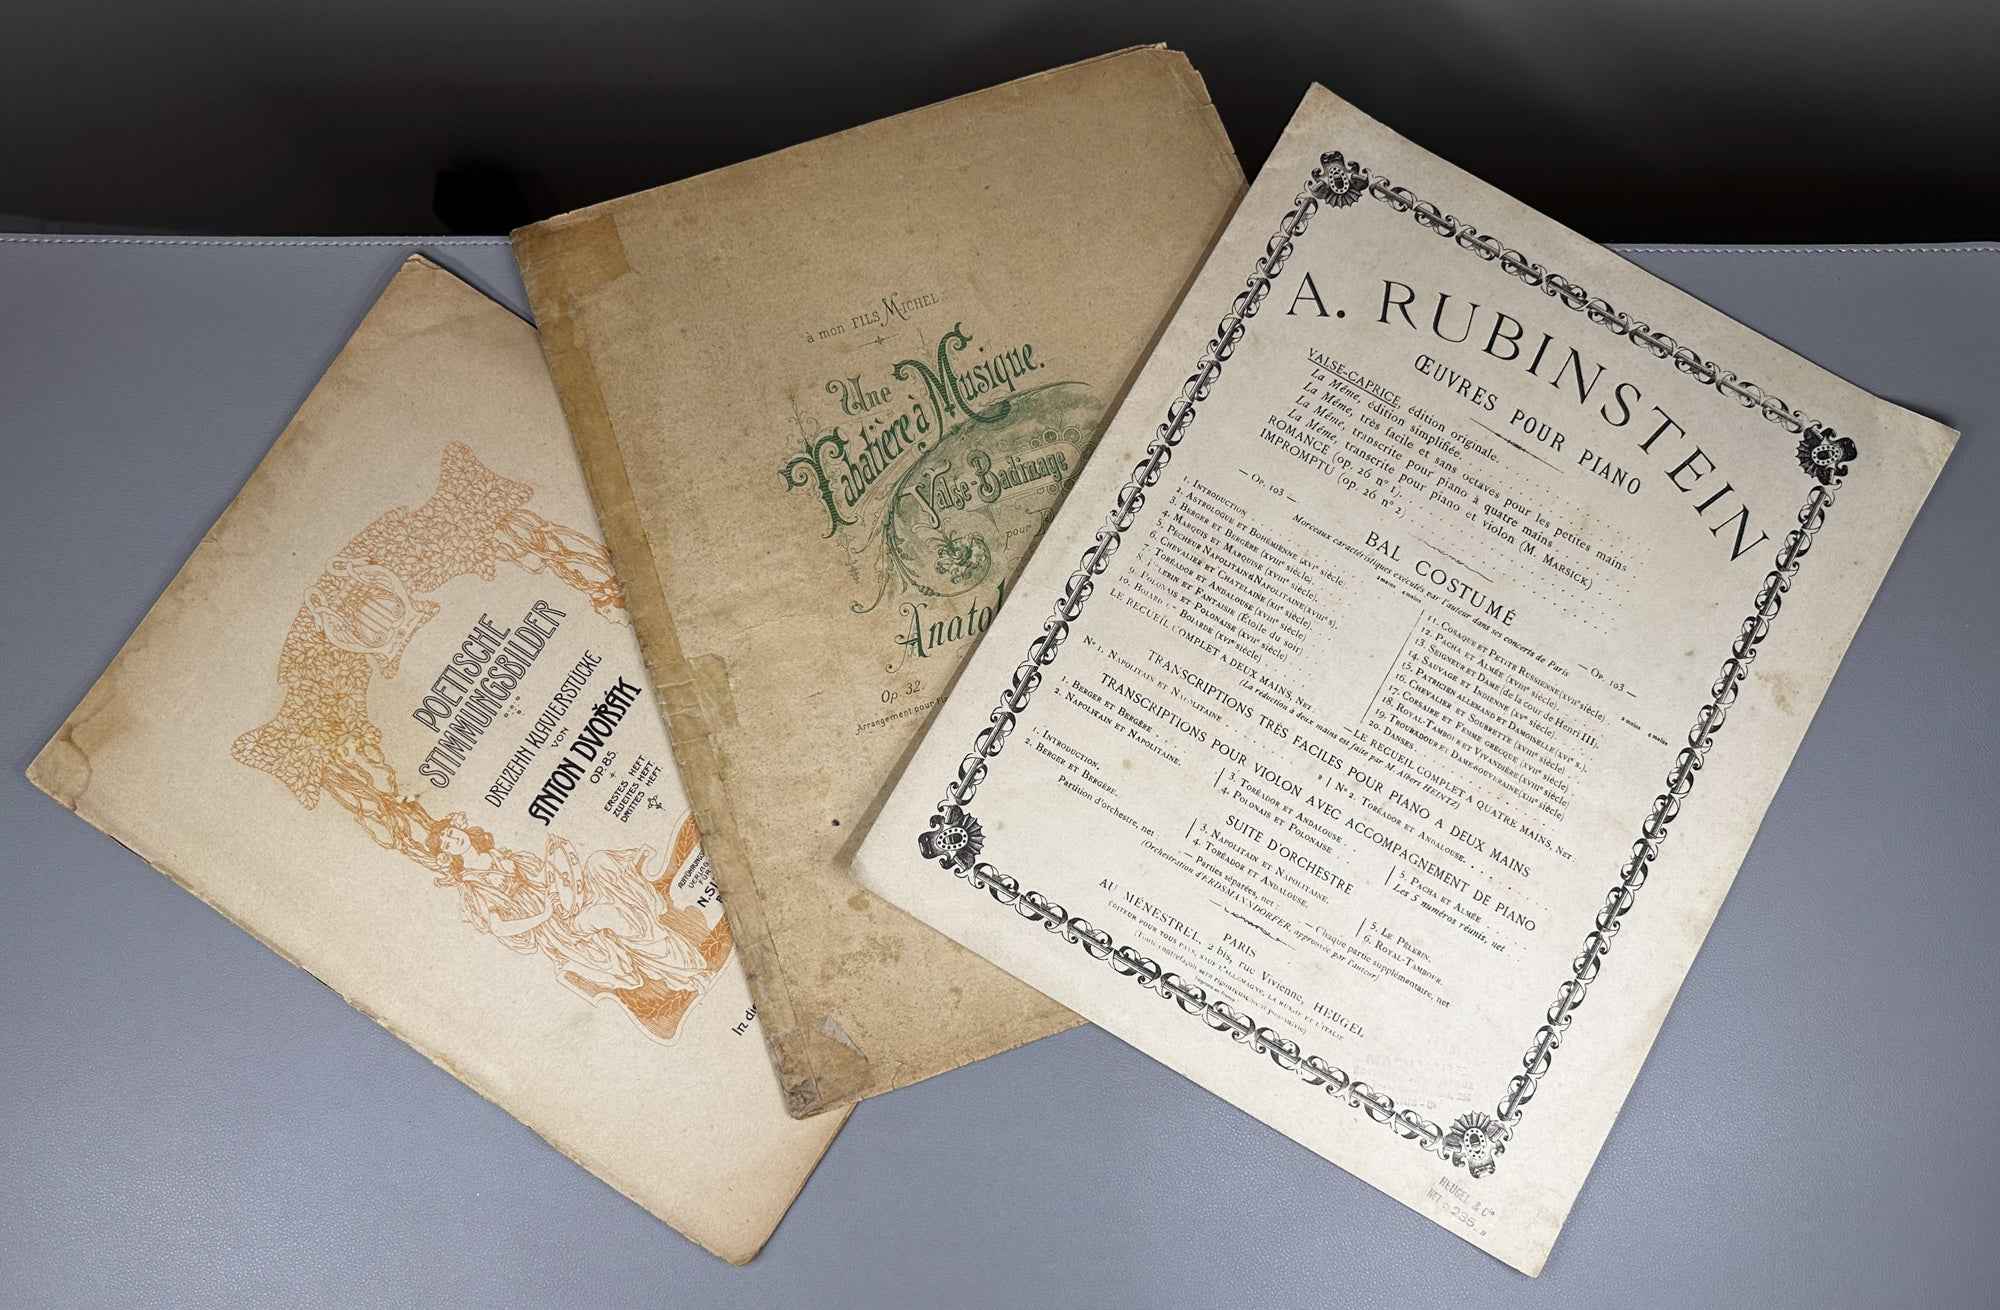 POETISCHE
STIMMUNGSBILDER
DREIZEHN KLAVIERSTÜCKE
VON
ANTON DVOŘÁK
OP. 85.
ERSTES HEFT.
ZWEITES HEFT.
DRITTES HEFT.
VERLAG
FÜR
N. SI
In die
à mon FILS MICHEL
Une
Tabatière à Musique.
Valse-Badinage
pour
Anatol
Op. 32.
Arrangement pour
A. RUBINSTEIN
ŒUVRES POUR PIANO
VALSE-CAPRICE, édition originale.
La Même, édition simplifiée.
La Même, très facile et sans octaves pour les petites mains
La Même, transcrite pour piano à quatre mains
La Même, transcrite pour piano et violon (M. MARSICK)
ROMANCE (op. 26 n° 1).
IMPROMPTU (op. 26 n° 2)
BAL COSTUMÉ
— OP. 103 — Morceaux caractéristiques exécutés par l'auteur dans ses concerts de Paris — OP. 103 —
2 mains 4 mains
2 mains 4 mains
1. INTRODUCTION
2. ASTROLOGUE ET BOHÉMIENNE (XVIe siècle)
3. BERGER ET BERGÈRE (XVIIIe siècle).
4. MARQUIS ET MARQUISE (XVIIIe siècle).
5. PÊCHEUR NAPOLITAIN ET NAPOLITAINE (XVIIIe s).
6. CHEVALIER ET CHATELAINE (XIIe siècle)
7. TORÉADOR ET ANDALOUSE (XVIIIe siècle)
8. PÈLERIN ET FANTAISIE (Étoile du soir)
9. POLONAIS ET POLONAISE (XVIIe siècle)
10. BOJARD ET BOIARDE (XVIe siècle)
LE RECUEIL COMPLET A DEUX MAINS, NET
(La réduction à deux mains est faite par M. Albert HEINTZ)
11. COSAQUE ET PETITE RUSSIENNE (XVIIe siècle)
12. PACHA ET ALMÉE (XVIIIe siècle).
13. SEIGNEUR ET DAME (de la cour de Henri III).
14. SAUVAGE ET INDIENNE (XVe siècle).
15. PATRICIEN ALLEMAND ET DAMOISELLE (XVIe s.).
16. CHEVALIER ET SOUBRETTE (XVIIIe siècle)
17. CORSAIRE ET FEMME GRECQUE (XVIIe siècle)
18. ROYAL-TAMBOUR ET VIVANDIÈRE (XVIIIe siècle)
19. TROUBADOUR ET DAME SOUVERAINE (XIIIe siècle)
20. DANSES
— LE RECUEIL COMPLET A QUATRE MAINS, NET
TRANSCRIPTIONS TRÈS FACILES POUR PIANO A DEUX MAINS
N° 1. NAPOLITAIN ET NAPOLITAINE
N° 2. TORÉADOR ET ANDALOUSE.
TRANSCRIPTIONS POUR VIOLON AVEC ACCOMPAGNEMENT DE PIANO
1. BERGER ET BERGÈRE
2. NAPOLITAIN ET NAPOLITAINE.
3. TORÉADOR ET ANDALOUSE
4. POLONAIS ET POLONAISE
5. PACHA ET ALMÉE
Les 5 numéros réunis, net
SUITE D'ORCHESTRE
1. INTRODUCTION.
2. BERGER ET BERGÈRE.
3. NAPOLITAIN ET NAPOLITAINE.
4. TORÉADOR ET ANDALOUSE.
5. LE PÈLERIN.
6. ROYAL-TAMBOUR.
Partition d'orchestre, net — Parties séparées, net : — Chaque partie supplémentaire, net
(Orchestration d'ERDSMANNDORFER, approuvée par l'auteur)
PARIS
AU MÉNESTREL, 2 bis, rue Vivienne, HEUGEL
ÉDITEUR POUR TOUS PAYS, SAUF L'ALLEMAGNE, LA RUSSIE ET L'ITALIE
HEUGEL & Cie
NET : 235